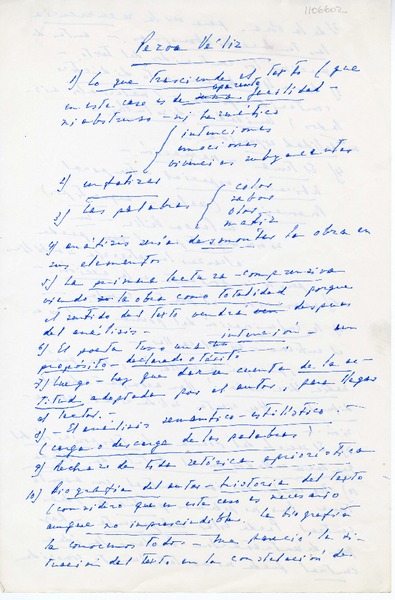 1106602
Pezoa Véliz
1) Lo que trasciende el texto (que
aparente
en este caso es de suma facilidad -
ni abstruso - ni hermético
intenciones
emociones
vivencias subyacentes
2) enfatizar
3) las palabras
color
sabor
olor
matiz
4) análisis sería desmontar la obra en
sus elementos
5) La primera lectura - comprensiva
viendo la obra como totalidad porque
el sentido del texto vendrá después
del análisis -
6) El poeta tuvo una intención - un
propósito - declarado o tácito
7) Luego - hay que dar cuenta de la ac-
titud adoptada por el autor, para llegar
al lector. -
8) - El análisis semántico - estilístico -
(carga o descarga de las palabras)
9) Rechazo de toda retórica apriorística
10) Biografía del autor - historia del texto
(considero que en este caso es necesario
aunque no imprescindible. La biografía
la conocemos todos - me pareció la si-
tuación del texto en la constelación de